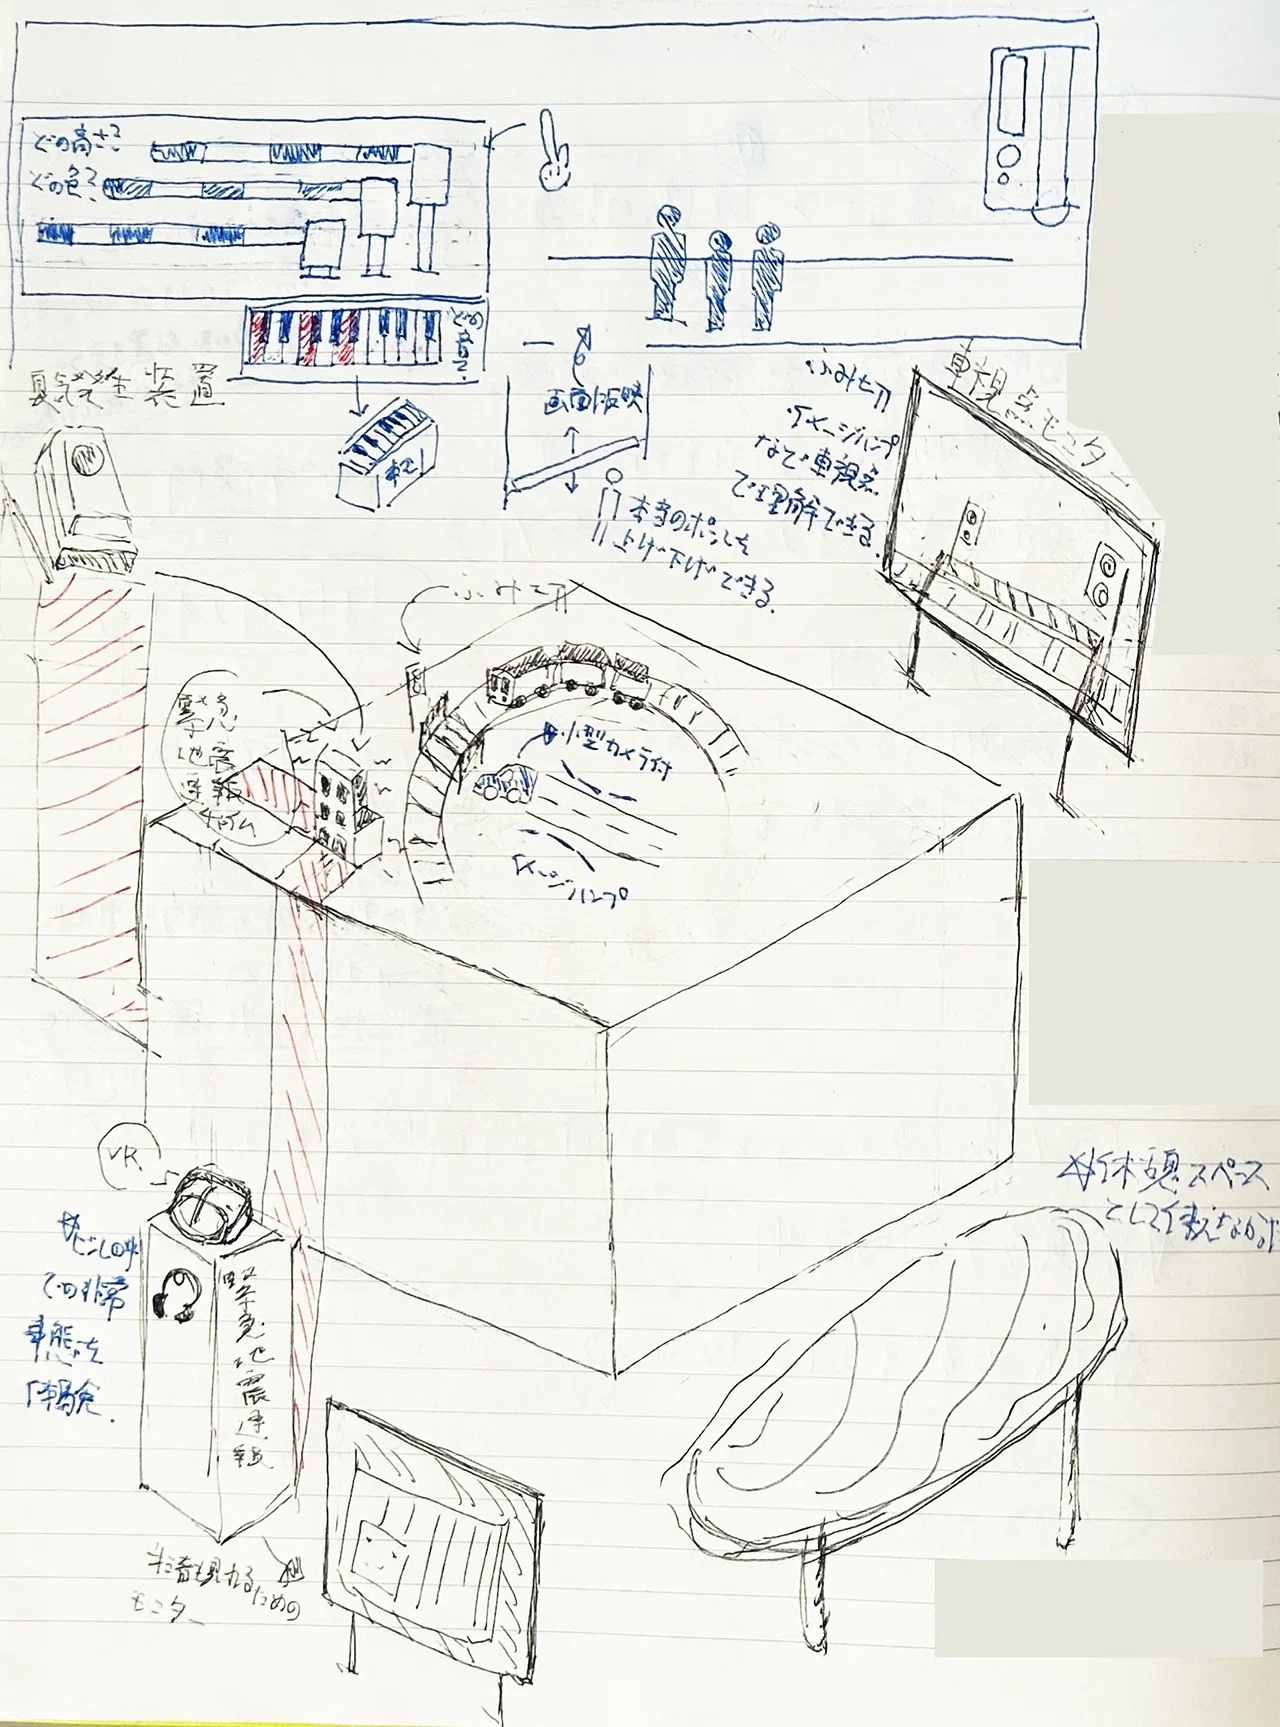 どの高さ?
どの色?
どの音?
画面反映
本当のポールを
上げ下げできる.
・ふみ切
・イメージハンプ
などで車視点
で理解できる.
車視点モニター
装置
ふみ切
緊急
地震
速報
タイム
小型カメラ付
イメージハンプ
VR.
ビルの中
での非常
事態を
体験.
緊急地震速報
モニター
休憩スペース
として使えないか